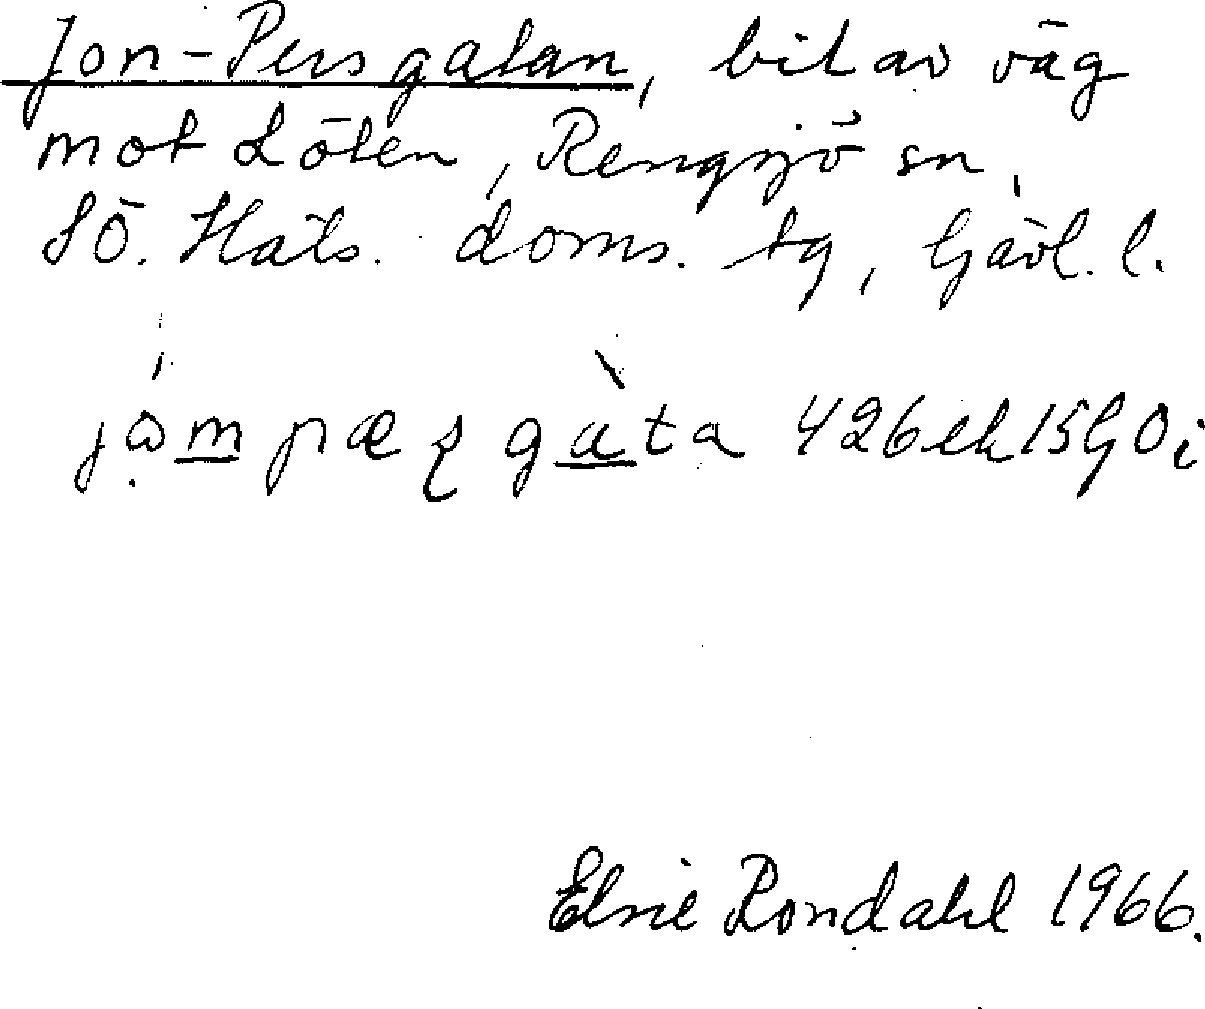 Jon-Persgatan, bit av väg
mot Löten, Rengsjö sn,
Sö. Häls. doms. tg, Gävl. l.
jåmpæʂgàta 426ek15G0i
Elsie Rondahl 1966.